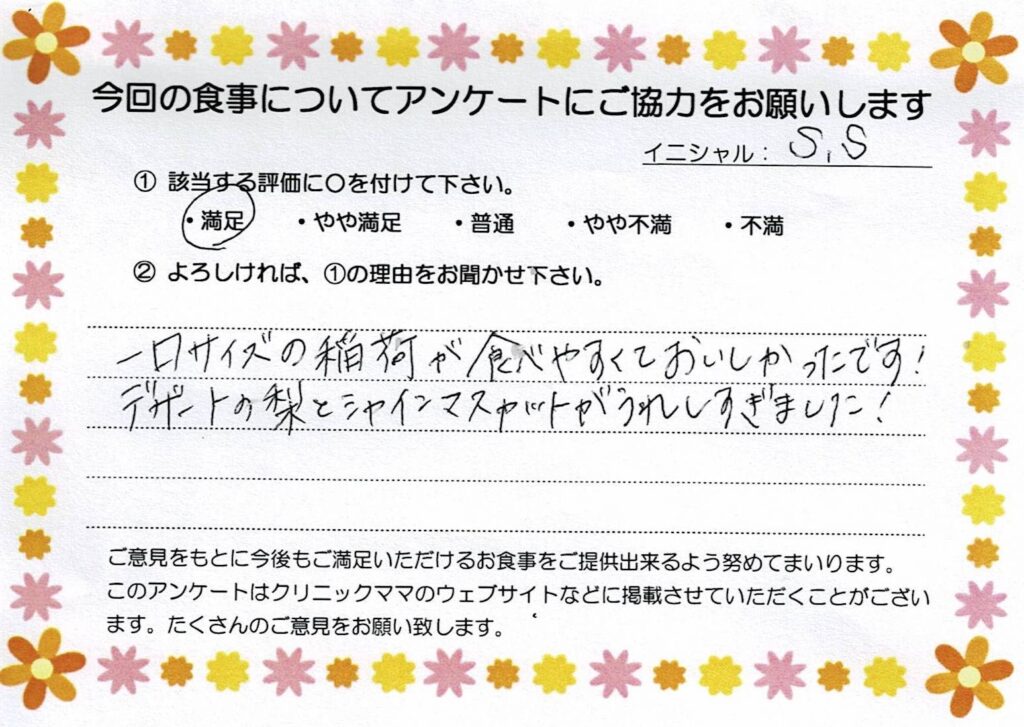 今回の食事についてアンケートにご協力をお願いします
イニシャル： S.S
① 該当する評価に〇を付けて下さい。
・満足 ・やや満足 ・普通 ・やや不満 ・不満
② よろしければ、①の理由をお聞かせ下さい。
一口サイズの稲荷が食べやすくておいしかったです！
デザートの梨とシャインマスカットがうれしすぎました！
ご意見をもとに今後もご満足いただけるお食事をご提供出来るよう努めてまいります。
このアンケートはクリニックママのウェブサイトなどに掲載させていただくことがござい
ます。たくさんのご意見をお願い致します。